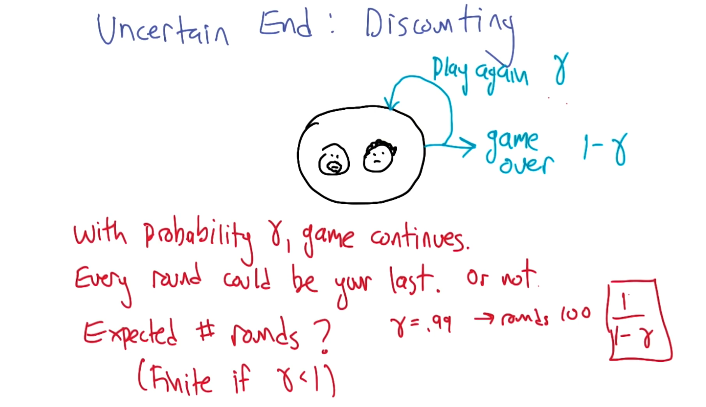 Uncertain End: Discounting
Play again γ
game over 1-γ
With probability γ, game continues.
Every round could be your last. Or not.
Expected # rounds? γ=.99 → rounds 100 1/(1-γ)
(Finite if γ<1)